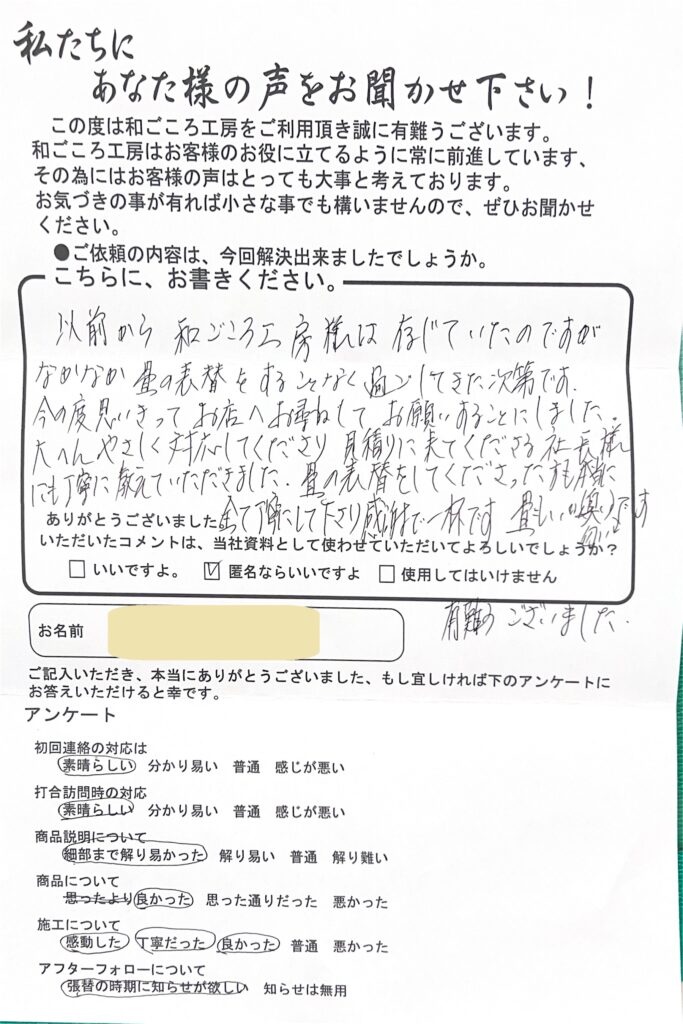 私たちに
あなた様の声をお聞かせ下さい！
この度は和ごころ工房をご利用頂き誠に有難うございます。
和ごころ工房はお客様のお役に立てるように常に前進しています、
その為にはお客様の声はとっても大事と考えております。
お気づきの事が有れば小さな事でも構いませんので、ぜひお聞かせ
ください。
●ご依頼の内容は、今回解決出来ましたでしょうか。
こちらに、お書きください。
以前から 和ごころ工房様は存じていたのですが
なかなか畳の表替をすることなく過ごしてきた次第です.
今の度思いきって お店へお尋ねして お願いすることにしました。
大へんやさしく対応してくださり 見積りに来てくださる社長様
にも丁寧に教えていただきました. 畳の表替をしてくださった
ありがとうございました 全て丁寧にして下さり感謝で一杯です 畳もいい です
いただいたコメントは、当社資料として使わせていただいてよろしいでしょうか？
□いいですよ。 ☑匿名ならいいですよ □使用してはいけません
有難う ございました.
お名前
ご記入いただき、本当にありがとうございました、もし宜しければ下のアンケートに
お答えいただけると幸です。
アンケート
初回連絡の対応は
素晴らしい 分かり易い 普通 感じが悪い
打合訪問時の対応
素晴らしい 分かり易い 普通 感じが悪い
商品説明について
細部まで解り易かった 解り易い 普通 解り難い
商品について
思ったより良かった 思った通りだった 悪かった
施工について
感動した 丁寧だった 良かった 普通 悪かった
アフターフォローについて
張替の時期に知らせが欲しい 知らせは無用